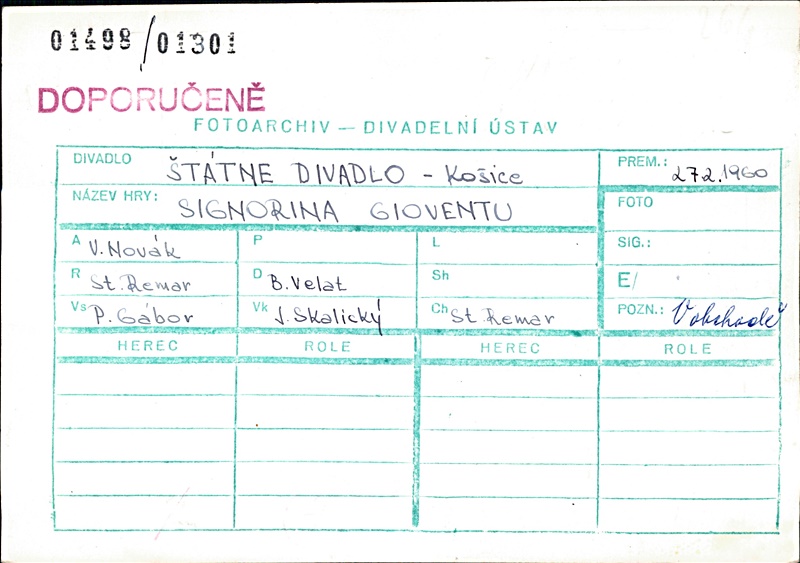 01498/01301
DOPORUČENĚ
FOTOARCHIV — DIVADELNÍ ÚSTAV
DIVADLO ŠTÁTNE DIVADLO - Košice
PREM.: 27.2.1960
NÁZEV HRY: SIGNORINA GIOVENTU
FOTO
A V. Novák
P
L
SIG.:
R St. Remar
D B. Velat
Sh
E/
Vs P. Gábor
Vk J. Skalický
Ch St. Remar
POZN.:
HEREC ROLE HEREC ROLE